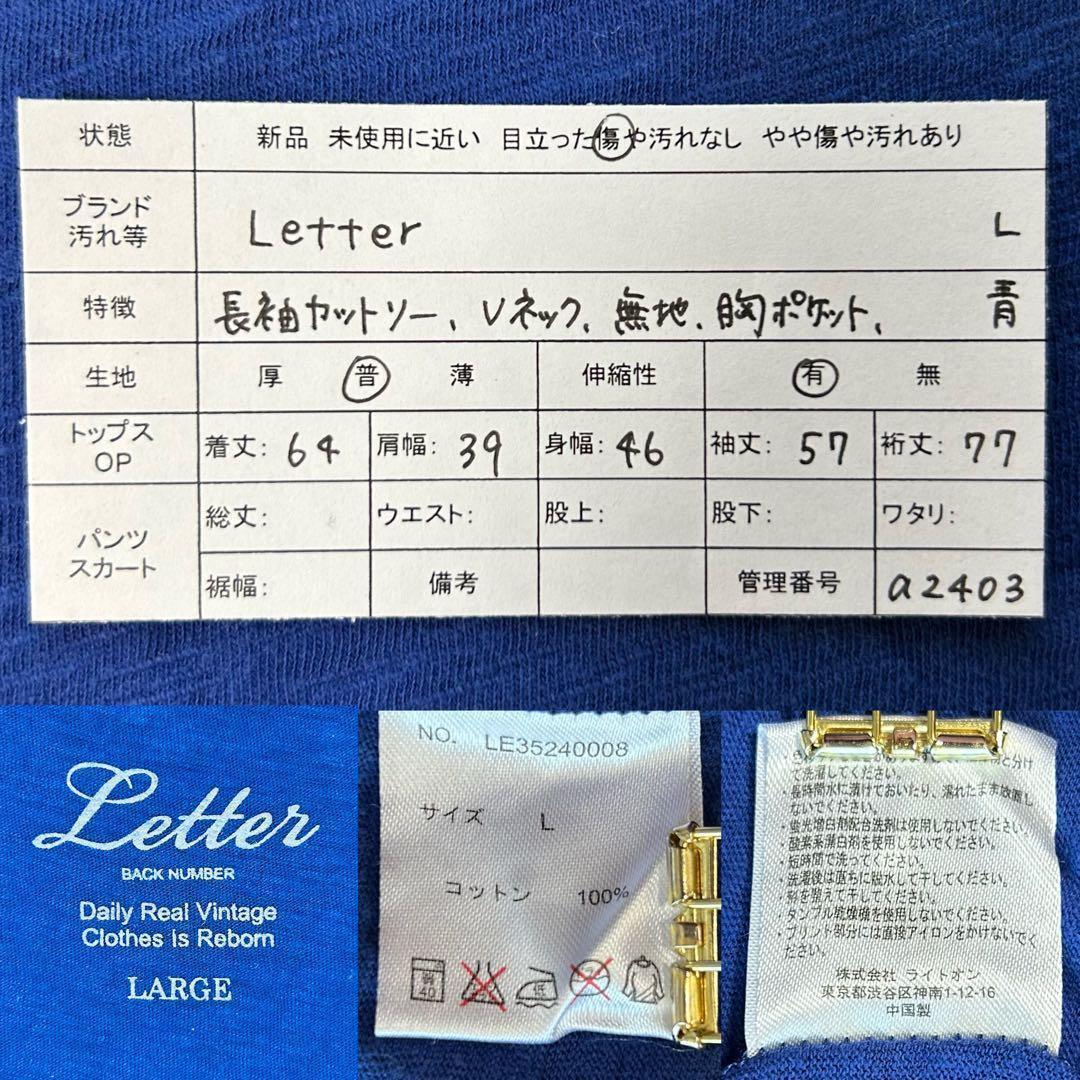 状態 新品 未使用に近い 目立った傷や汚れなし やや傷や汚れあり
ブランド
汚れ等 Letter L
特徴 長袖カットソー、Vネック、無地、胸ポケット、 青
生地 厚 普 薄 伸縮性 有 無
トップス
OP 着丈: 64 肩幅: 39 身幅: 46 袖丈: 57 裄丈: 77
パンツ
スカート 総丈: ウエスト: 股上: 股下: ワタリ:
裾幅: 備考 管理番号 a2403
Letter
BACK NUMBER
Daily Real Vintage
Clothes is Reborn
LARGE
NO. LE35240008
サイズ L
コットン 100%
弱
40
低
と分け
て洗濯してください。
・長時間水に漬けておいたり、濡れたまま放置し
ないでください。
・蛍光増白剤配合洗剤は使用しないでください。
・酸素系漂白剤を使用しないでください。
・短時間で洗ってください。
・洗濯後は直ちに脱水して干してください。
・形を整えて干してください。
・タンブル乾燥機を使用しないでください。
・プリント部分には直接アイロンをかけないでく
ださい。
株式会社 ライトオン
東京都渋谷区神南1-12-16
中国製